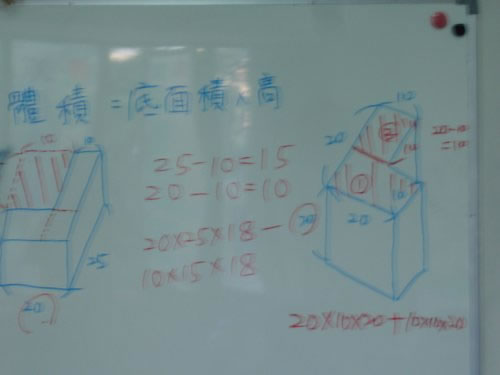 體積=底面積×高
25-10=15
20-10=10
20×25×18-
10×15×18
10
10
25
20
10
20
②
20-10
=10
10
①
10
20
20
20×10×20+10×10×20